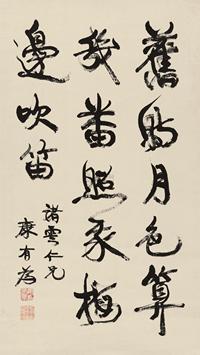 舊時月色算
幾番照我梅
邊吹笛
雲仁兄
康有為